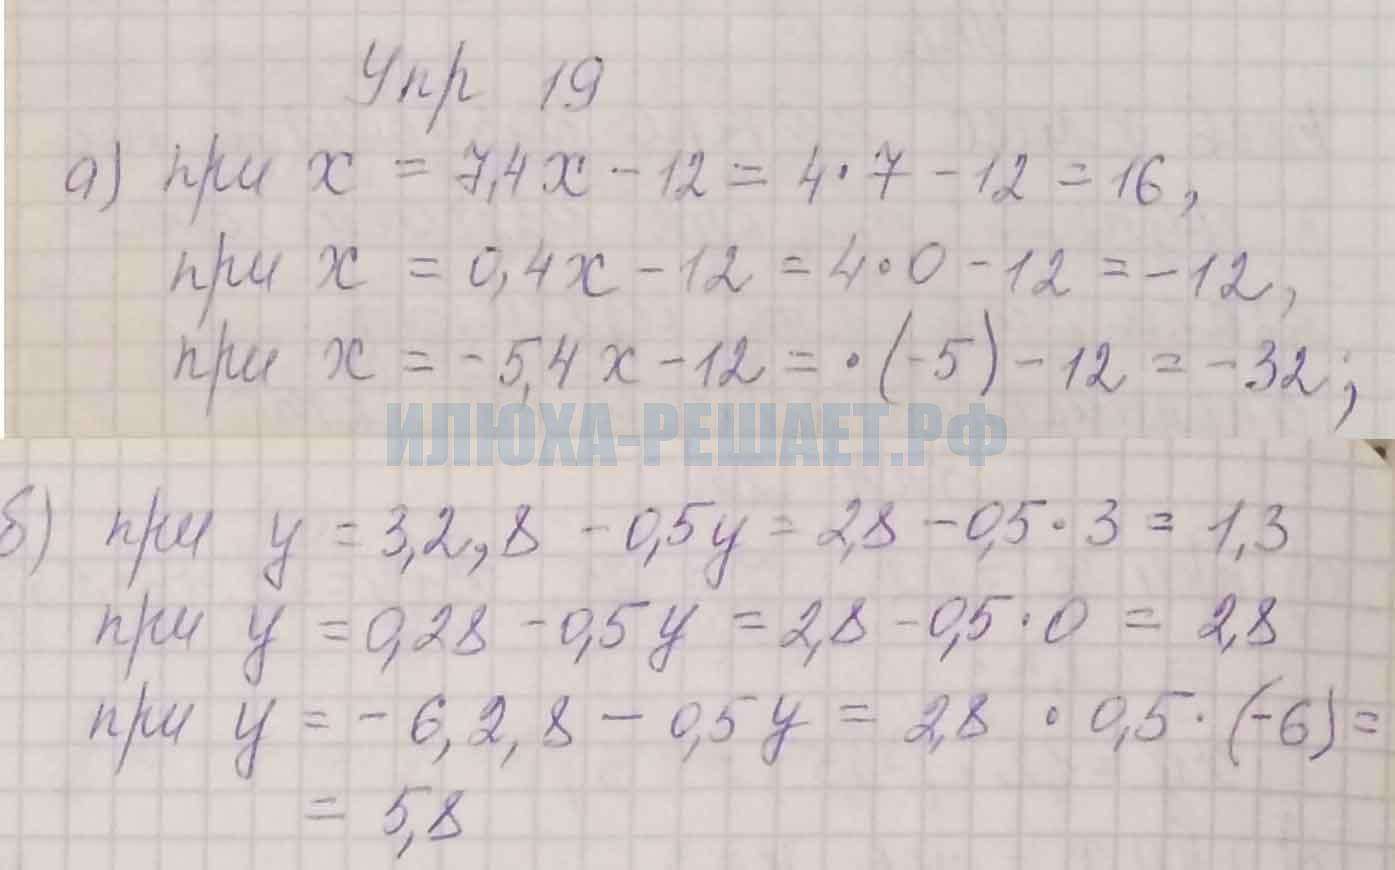 Упр 19
а) при x = 7,4x - 12 = 4·7 - 12 = 16,
при x = 0,4x - 12 = 4·0 - 12 = -12,
при x = -5,4x - 12 = ·(-5) - 12 = -32;
ИЛЮХА-РЕШАЕТ.РФ
б) при y = 3,2,8 - 0,5y = 2,8 - 0,5·3 = 1,3
при y = 0,28 - 0,5y = 2,8 - 0,5·0 = 2,8
при y = -6,2,8 - 0,5y = 2,8 · 0,5·(-6) =
= 5,8